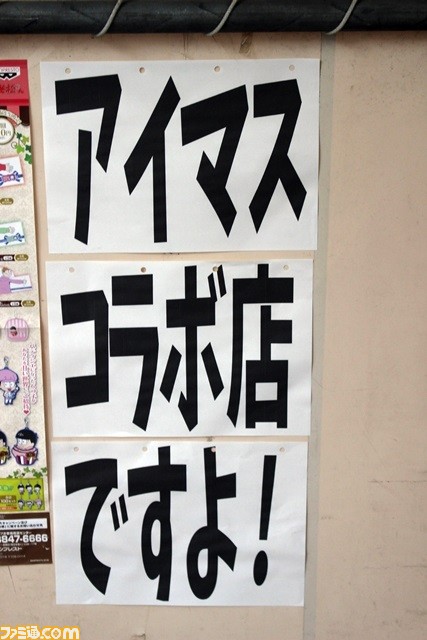 アイマス
コラボ店
ですよ！
3847-6666
ファミ通.com